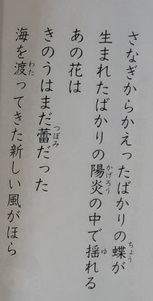 さなぎからかえったばかりの蝶が
生まれたばかりの陽炎の中で揺れる
あの花は
きのうはまだ蕾だった
海を渡ってきた新しい風がほら